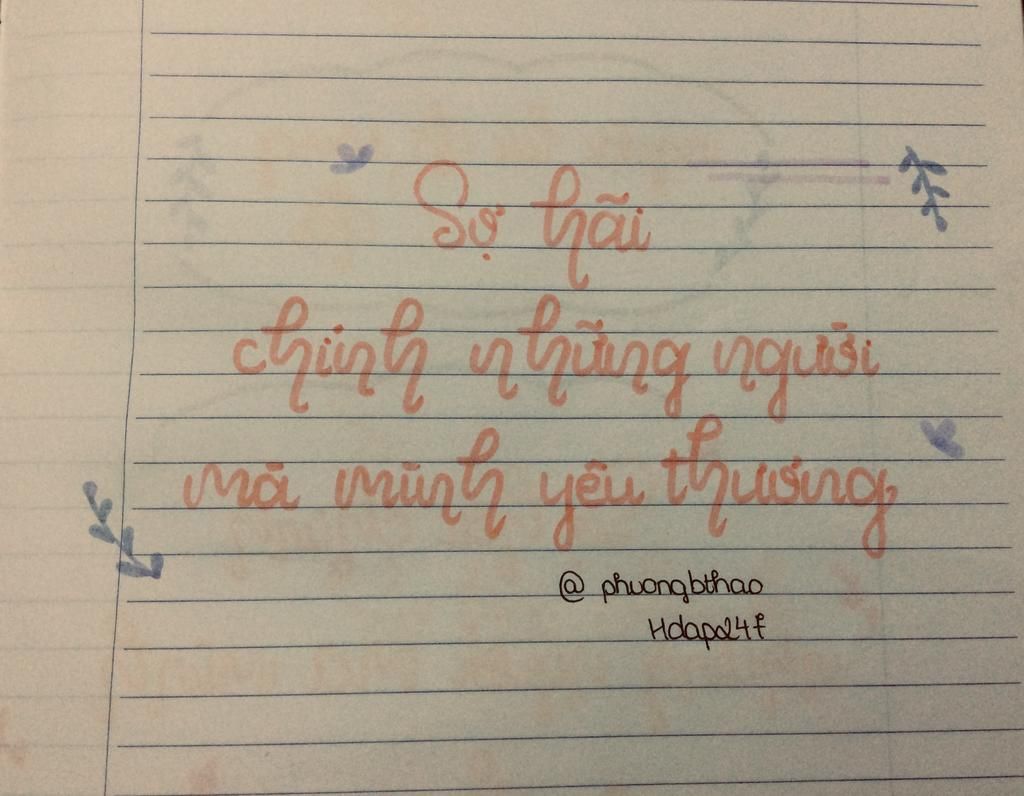 Sợ hãi
chính những người
mà mình yêu thương
@ phuongbthao
Hdapd24f